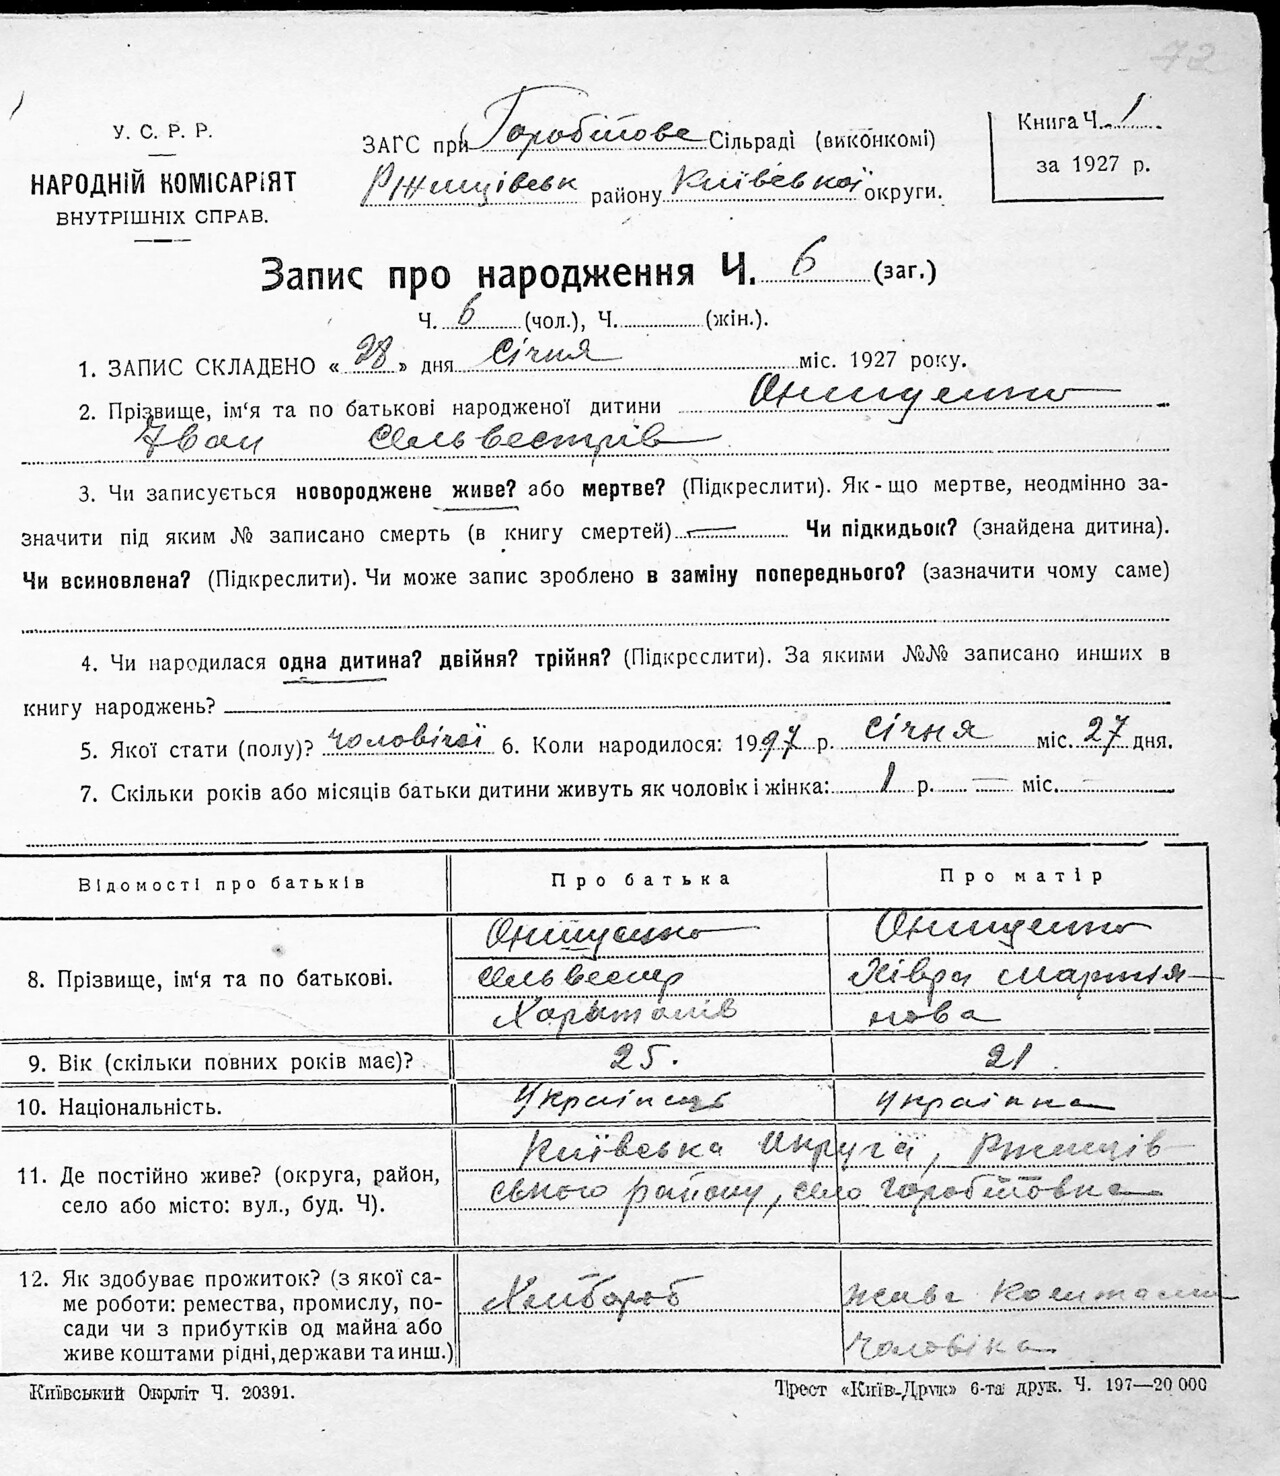 72
У. С. Р. Р.
НАРОДНІЙ КОМІСАРІЯТ
ВНУТРІШНІХ СПРАВ.
ЗАГС при Горобіѓова Сільраді (виконкомі)
Ржищівськ району Київської округи.
Книга Ч. 1
за 1927 р.
Запис про народження Ч. 6 (заг.)
Ч. 6 (чол.), Ч. (жін.).
1. ЗАПИС СКЛАДЕНО « 28 » дня Січня міс. 1927 року.
2. Прізвище, ім'я та по батькові народженої дитини Онищенко
Іван Сельвестрів
3. Чи записується новороджене живе? або мертве? (Підкреслити). Як-що мертве, неодмінно за-
значити під яким № записано смерть (в книгу смертей) — Чи підкидьок? (знайдена дитина).
Чи всиновлена? (Підкреслити). Чи може запис зроблено в заміну попереднього? (зазначити чому саме)
4. Чи народилася одна дитина? двійня? трійня? (Підкреслити). За якими №№ записано инших в
книгу народжень?
5. Якої стати (полу)? чоловічої 6. Коли народилося: 1927 р. Січня міс. 27 дня.
7. Скільки років або місяців батьки дитини живуть як чоловік і жінка: 1 р. — міс. —
Відомості про батьків Про батька Про матір
8. Прізвище, ім'я та по батькові.
Онищенко
Сельвестр
Харитонів
Онищенко
Хівря Мартія-
нова
9. Вік (скільки повних років має)? 25. 21
10. Національність. Українець українка
11. Де постійно живе? (округа, район,
село або місто: вул., буд. Ч).
Київська Округа, Ржищів
ського району, село Горобіївка
12. Як здобуває прожиток? (з якої са-
ме роботи: ремества, промислу, по-
сади чи з прибутків од майна або
живе коштами рідні, держави та инш.)
Хлібороб
живе коштами
чоловіка
Київський Окрліт Ч. 20391.
Трест «Київ-Друк» 6-та друк. Ч. 197—20 000